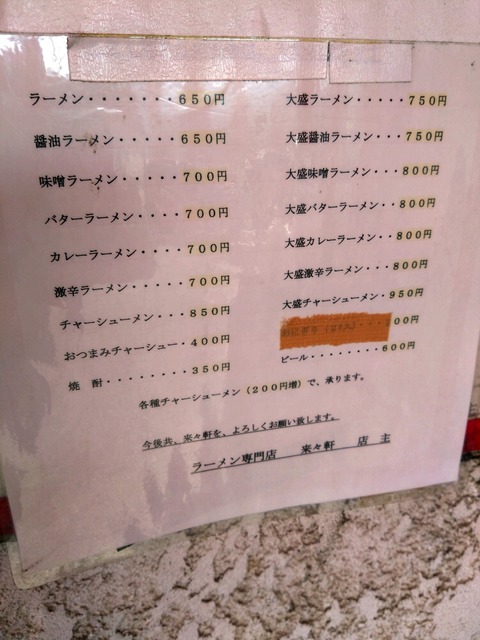 ラーメン・・・・・・・650円
醤油ラーメン・・・・・650円
味噌ラーメン・・・・・700円
バターラーメン・・・・700円
カレーラーメン・・・・700円
激辛ラーメン・・・・・700円
チャーシューメン・・・850円
おつまみチャーシュー・400円
焼 酎・・・・・・・・350円
大盛ラーメン・・・・・750円
大盛醤油ラーメン・・・750円
大盛味噌ラーメン・・・800円
大盛バターラーメン・・800円
大盛カレーラーメン・・800円
大盛激辛ラーメン・・・800円
大盛チャーシューメン・950円
00円
ビール・・・・・・・・600円
各種チャーシューメン(200円増)で、承ります。
今後共、来々軒を、よろしくお願い致します。
ラーメン専門店 来々軒 店 主